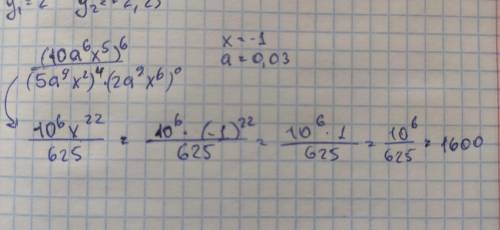 y₁ = 2 y₂ = 2,25
(10a⁶x⁵)⁶ / (5a⁹x²)⁴·(2a⁹x⁶)⁰
x = -1
a = 0,03
10⁶x²² / 625 = 10⁶·(-1)²² / 625 = 10⁶·1 / 625 = 10⁶ / 625 = 1600